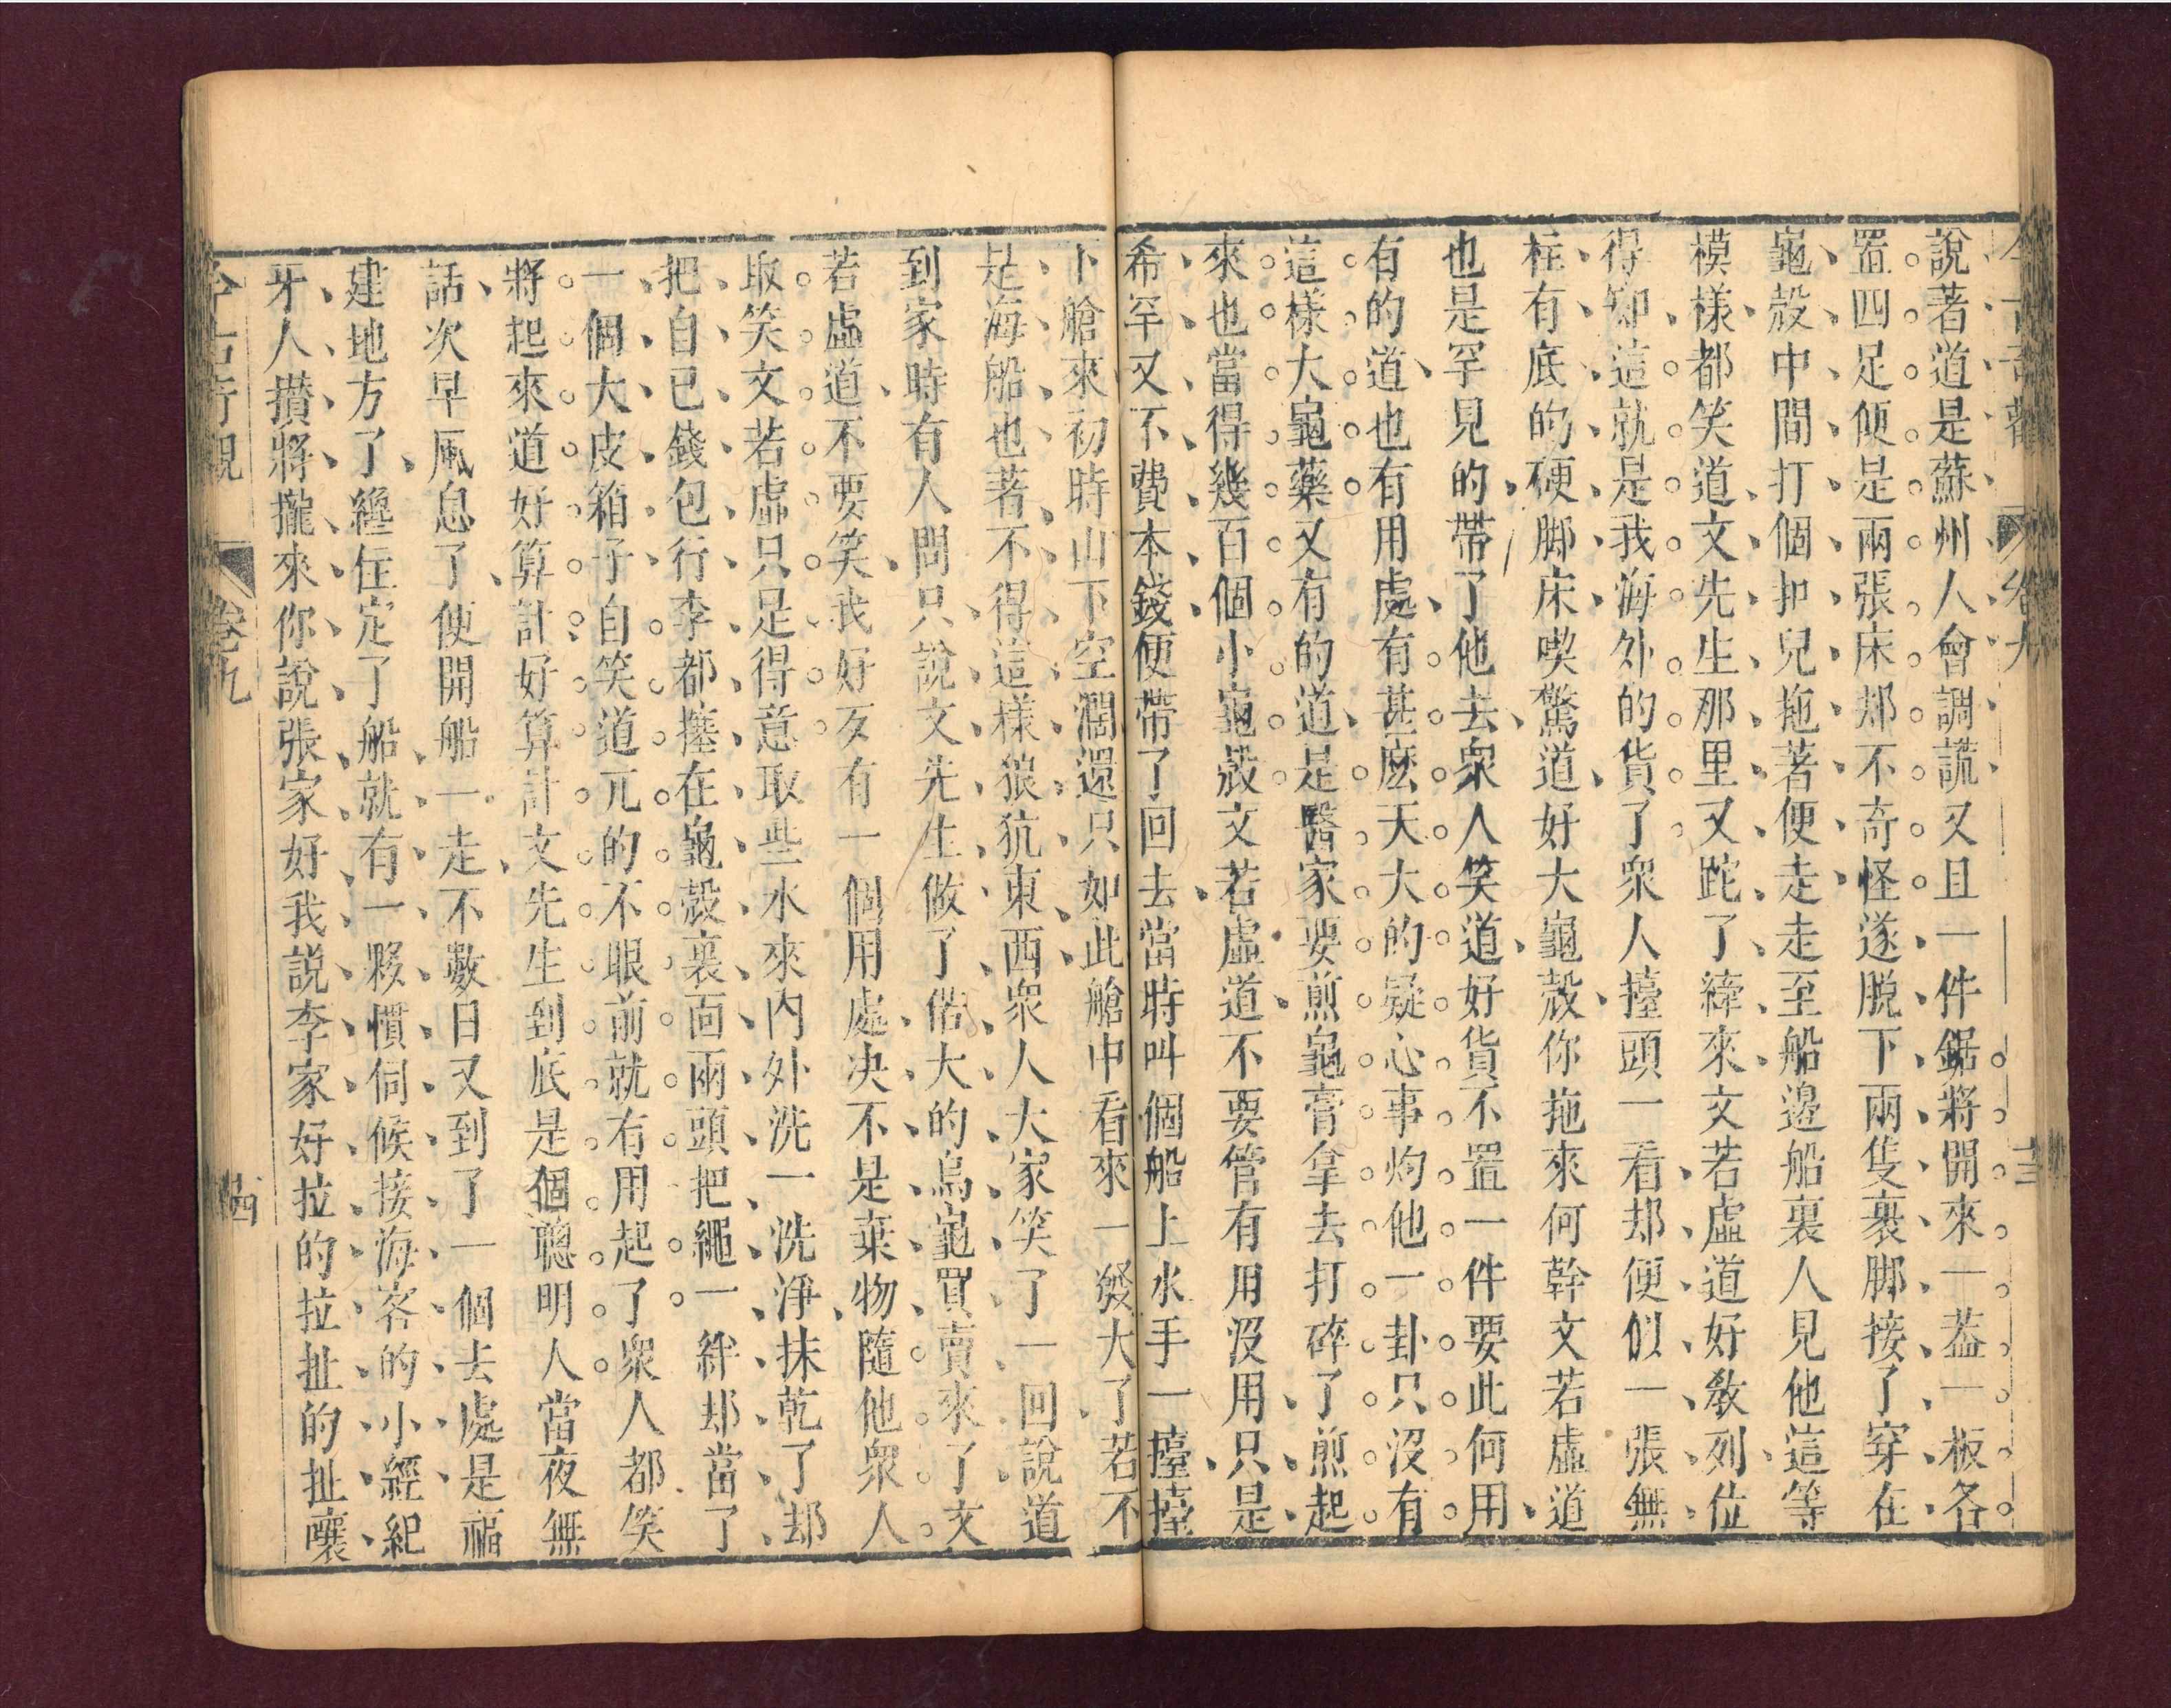 今古奇觀 卷九 十三
說著道是蘇州人會調謊又且一件鋸將開來一葢一板各
置四足便是兩張床却不奇怪遂脫下兩隻裹脚接了穿在
龜殼中間打個扣兒拖著便走走至船邊船裏人見他這等
模樣都笑道文先生那里又跎了縴來文若虛道好教列位
得知這就是我海外的貨了衆人擡頭一看却便似一張無
柱有底的硬脚床喫驚道好大龜殼你拖來何幹文若虛道
也是罕見的帶了他去衆人笑道好貨不置一件要此何用
有的道也有用處有甚麽天大的疑心事灼他一卦只沒有
這樣大龜藥又有的道是醫家要煎龜膏拿去打碎了煎起
來也當得幾百個小龜殼文若虛道不要管有用沒用只是
希罕又不費本錢便帶了回去當時叫個船上水手一擡擡
下艙來初時山下空濶還只如此艙中看來一發大了若不
是海船也著不得這樣狼犺東西衆人大家笑了一回說道
到家時有人問只說文先生做了偌大的烏龜買賣來了文
若虛道不要笑我好歹有一個用處决不是棄物隨他衆人
取笑文若虛只是得意取些水來內外洗一洗淨抹乾了却
把自已錢包行李都擡在龜殼裏面兩頭把繩一絆却當了
一個大皮箱子自笑道兀的不眼前就有用起了衆人都笑
將起來道好算計好算計文先生到底是個聰明人當夜無
話次早風息了便開船一走不數日又到了一個去處是福
建地方了纔住定了船就有一夥慣伺候接海客的小經紀
牙人攅將攏來你說張家好我說李家好拉的拉扯的扯嚷
今古奇觀 卷九 十四